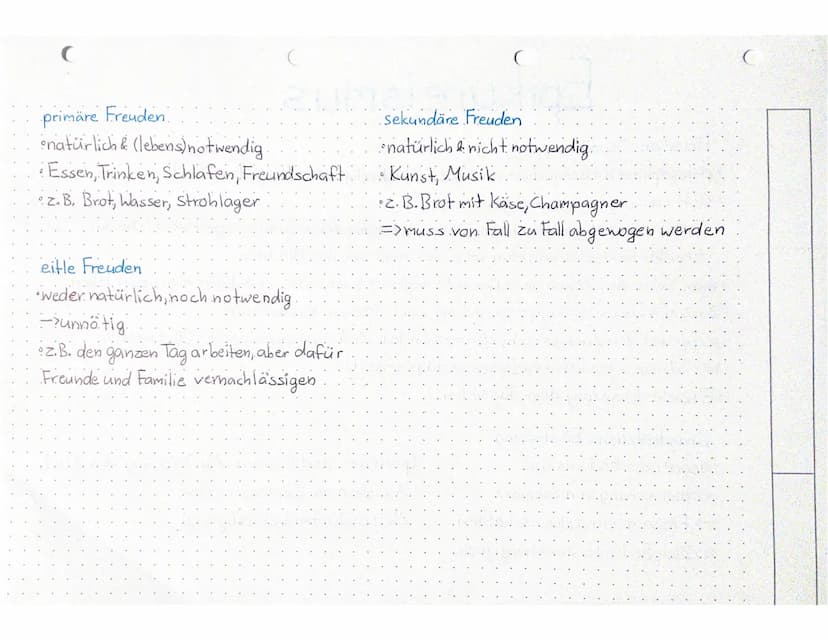 primäre Freuden
•natürlich & (lebens)notwendig
• Essen, Trinken, Schlafen, Freundschaft
• z.B. Brot, Wasser, Strohlager
sekundäre Freuden
•natürlich & nicht notwendig
• Kunst, Musik
•z.B. Brot mit Käse, Champagner
=> muss von Fall zu Fall abgewogen werden
eitle Freuden
•weder natürlich, noch notwendig
→ unnötig
•z.B. den ganzen Tag arbeiten, aber dafür
Freunde und Familie vernachlässigen